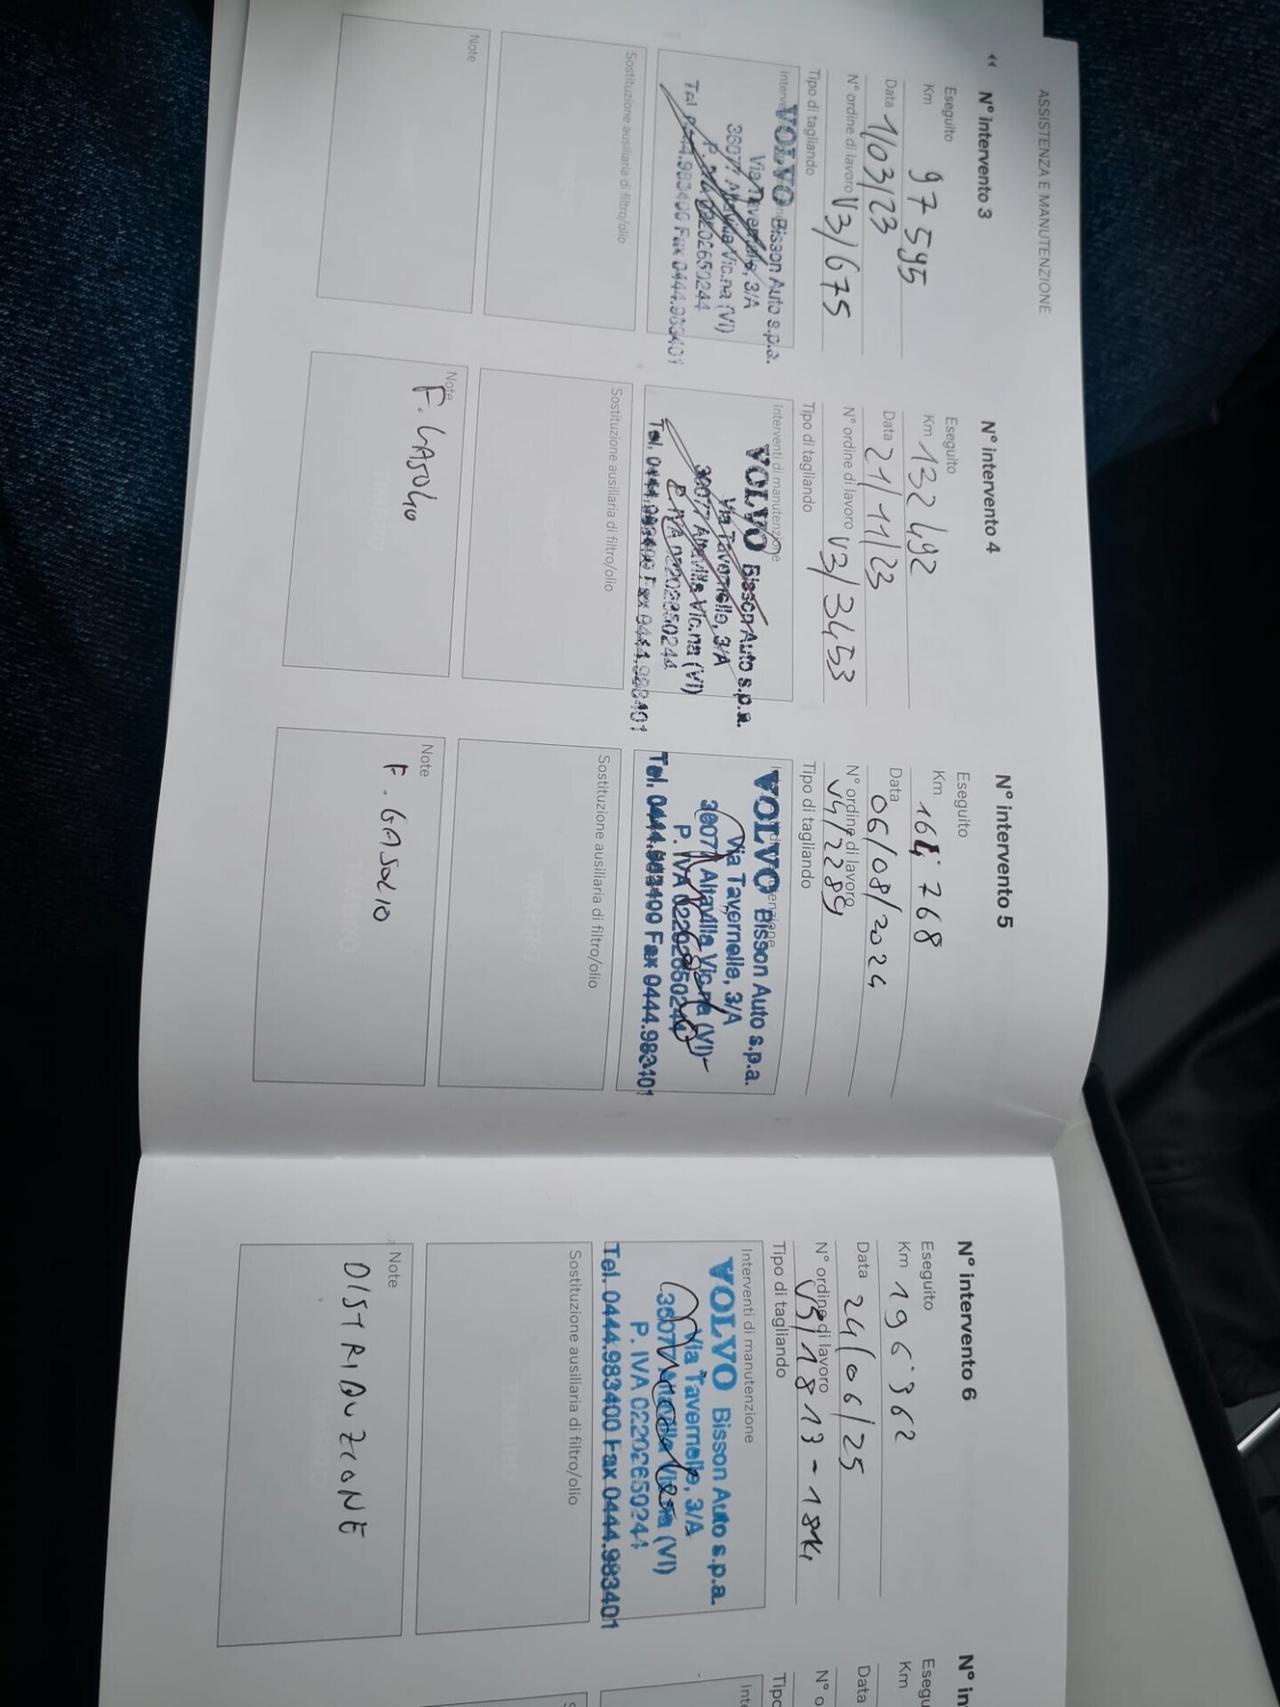 ASSISTENZA E MANUTENZIONE
◂◂
N° intervento 3
Eseguito
Km 97595
Data 1/03/23
N° ordine di lavoro V3/675
Tipo di tagliando
VOLVO Bisson Auto s.p.a.
Via Tavernelle, 3/A
36077 Altavilla Vic.na (VI)
P. IVA 02202650244
Tel. 0444.983400 Fax 0444.983401
Sostituzione ausiliaria di filtro/olio
Note
N° intervento 4
Eseguito
Km 132492
Data 21/11/23
N° ordine di lavoro V3/3453
Tipo di tagliando
Interventi di manutenzione
VOLVO Bisson Auto s.p.a.
Via Tavernelle, 3/A
36077 Altavilla Vic.na (VI)
P. IVA 02202650244
Tel. 0444.983400 Fax 0444.983401
Sostituzione ausiliaria di filtro/olio
Note
F. GASOLIO
N° intervento 5
Eseguito
Km 164768
Data 06/08/2024
N° ordine di lavoro V4/2284
Tipo di tagliando
VOLVO Bisson Auto s.p.a.
Via Tavernelle, 3/A
36077 Altavilla Vic.na (VI)
P. IVA 02202650244
Tel. 0444.983400 Fax 0444.983401
Sostituzione ausiliaria di filtro/olio
TIMBRO
Note
F. GASOLIO
TIMBRO
N° intervento 6
Eseguito
Km 196362
Data 24/06/25
N° ordine di lavoro V5/1813-1814
Tipo di tagliando
Interventi di manutenzione
VOLVO Bisson Auto s.p.a.
Via Tavernelle, 3/A
36077 Altavilla Vic.na (VI)
P. IVA 02202650244
Tel. 0444.983400 Fax 0444.983401
Sostituzione ausiliaria di filtro/olio
TIMBRO
Note
DISTRIBUZIONE
N° in
Esegu
Km
Data
N° o
Tipo
Inte
S